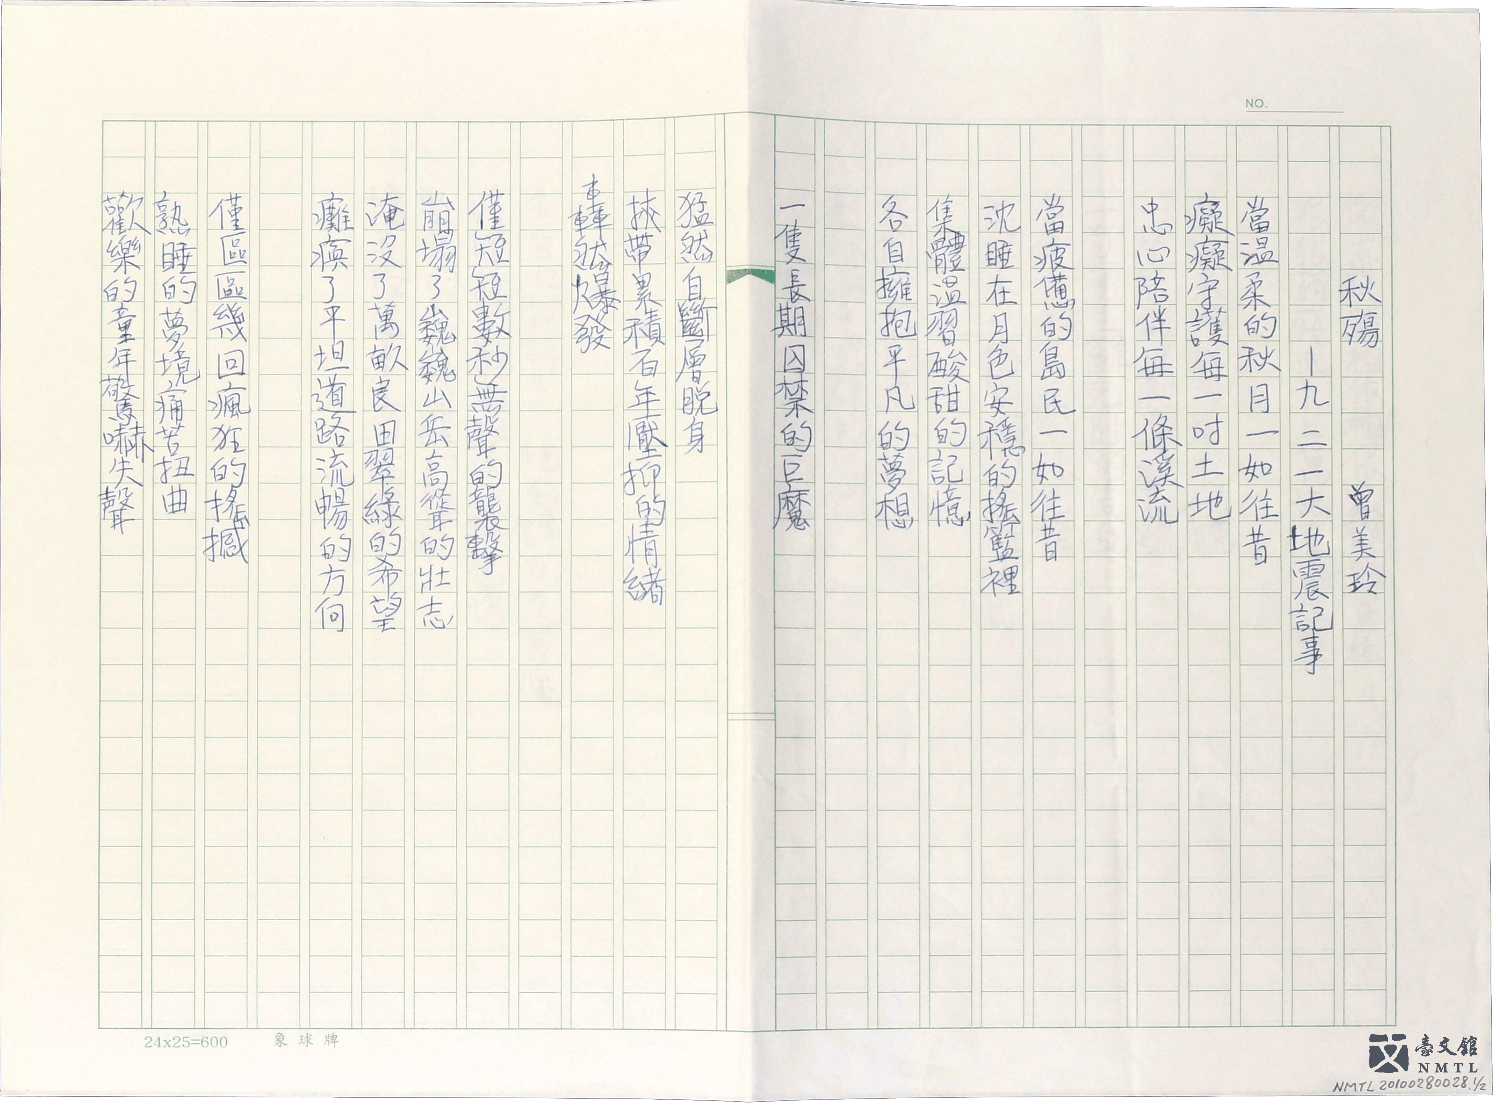 NO.
秋殤　　曾美玲
—九二一大地震記事
當溫柔的秋月一如往昔
癡癡守護每一吋土地
忠心陪伴每一條溪流
當疲憊的島民一如往昔
沈睡在月色安穩的搖籃裡
集體溫習酸甜的記憶
各自擁抱平凡的夢想
一隻長期囚禁的巨魔
猛然自斷層脫身
挾帶累積百年壓抑的情緒
轟然爆發
僅短短數秒無聲的襲擊
崩塌了巍巍山岳高聳的壯志
淹沒了萬畝良田翠綠的希望
癱瘓了平坦道路流暢的方向
僅區區幾回瘋狂的搖撼
熟睡的夢境痛苦扭曲
歡樂的童年驚嚇失聲
24x25=600　象球牌
臺文館
NMTL
NMTL 20100280028.1/2